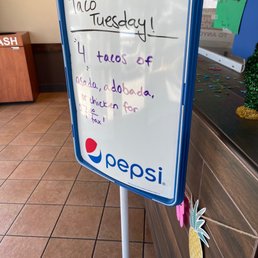 Taco
Tuesday!
4 tacos of
asada, adobada,
or chicken for
tax!
pepsi